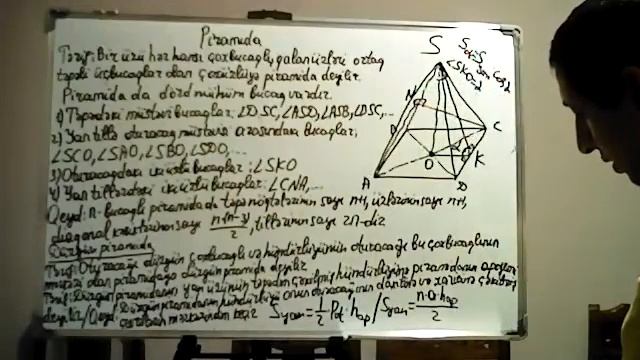 Piramida
Tərif: Bir üzü hər hansı çoxbucaqlı, qalan üzləri ortaq
təpəli üçbucaqlar olan çoxüzlüyə piramida deyilir.
Piramida da dörd mühüm bucaq vardır.
1) Təpədəki müstəvi bucaqlar: ∠DSC, ∠ASD, ∠ASB, ∠BSC, ...
2) Yan tillə oturacaq müstəvisi arasındakı bucaqlar;
∠SCO, ∠SAO, ∠SBO, ∠SDO, ...
3) Oturacaqdakı ikiüzlü bucaqlar: ∠SKO
4) Yan tillərdəki ikiüzlü bucaqlar: ∠CNA, ...
Qeyd: n-bucaqlı piramidada təpə nöqtələrinin sayı n+1, üzlərinin sayı n+1,
diaqonal kəsiklərinin sayı n(n-3)/2, tillərinin sayı 2n-dir
Düzgün piramida
Tərif: Oturacağı düzgün çoxbucaqlı və hündürlüyünün oturacağı bu çoxbucaqlının
mərkəzi olan piramidaya düzgün piramida deyilir
Tərif: Düzgün piramidanın yan üzünün təpədən çəkilmiş hündürlüyünə piramidanın apofemi
deyilir/Qeyd: Düzgün piramidanın hündürlüyü onun oturacağının daxilinə və xaricinə çəkilmiş
çevrənin mərkəzindən keçir S yan = 1/2 Pot · hap / S yan = n·a·hap/2
S
N
B
C
O
K
A
D
Sot = Syan cosα
∠SKO=α